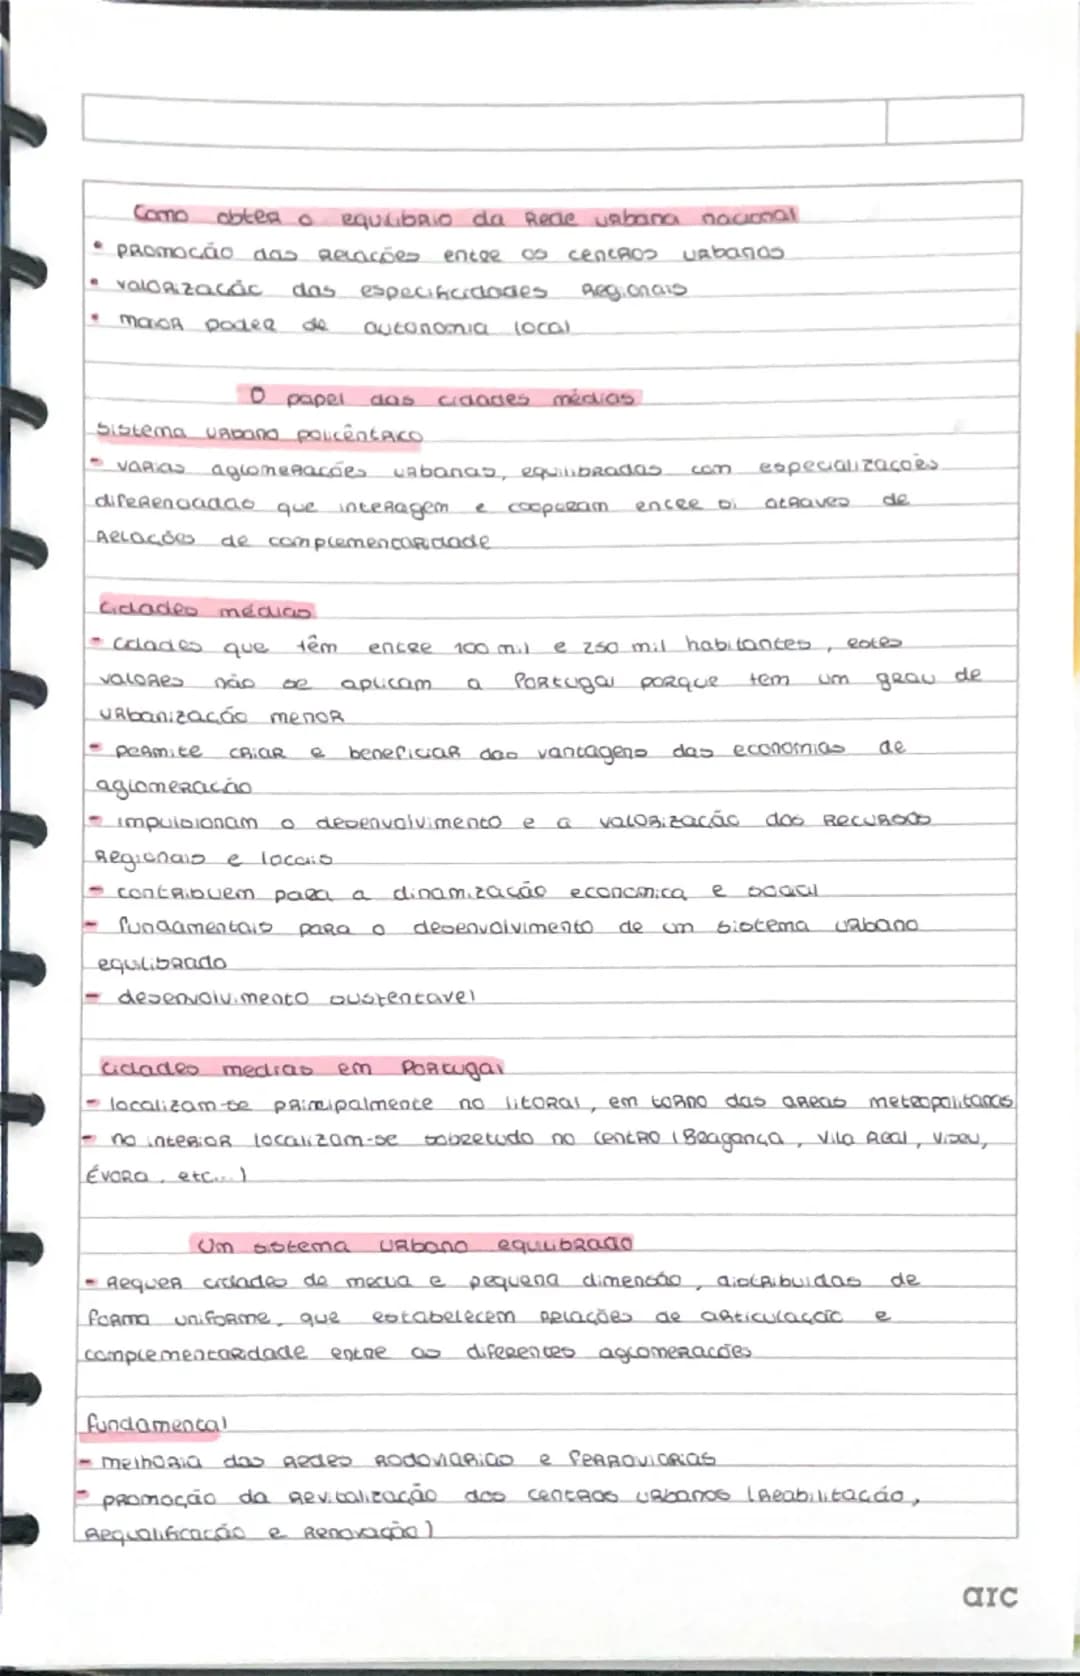 Como obter o equilibrio da Rede urbana nacional
• promoção das relações entre os centros urbanos
• valorização das especificidades regionais
• maior poder de autonomia local
O papel das cidades médias
Sistema urbano policêntrico
- varias aglomerações urbanas, equilibradas com especializações
diferenciadas que interagem e cooperam entre si atraves de
relações de complementaridade
Cidades médias
- cidades que têm entre 100 mil e 250 mil habitantes, estes
valores não se aplicam a Portugal porque tem um grau de
urbanização menor
- permite criar e beneficiar das vantagens das economias de
aglomeração
- impulsionam o desenvolvimento e a valorização dos recursos
regionais e locais
- contribuem para a dinamização economica e social
- fundamentais para o desenvolvimento de um sistema urbano
equilibrado
- desenvolvimento sustentavel
Cidades medias em Portugal
- localizam-se principalmente no litoral, em torno das areas metropolitanas
- no interior localizam-se sobretudo no centro (Bragança, Vila Real, Viseu,
Évora, etc...)
Um sistema urbano equilibrado
- Requer cidades de media e pequena dimensão, distribuidas de
forma uniforme, que estabelecem relações de articulação e
complementaridade entre as diferentes aglomerações
fundamental
- melhoria das redes rodoviarias e ferroviarias
- promoção da revitalização dos centros urbanos (reabilitação,
requalificação e renovação)
arc